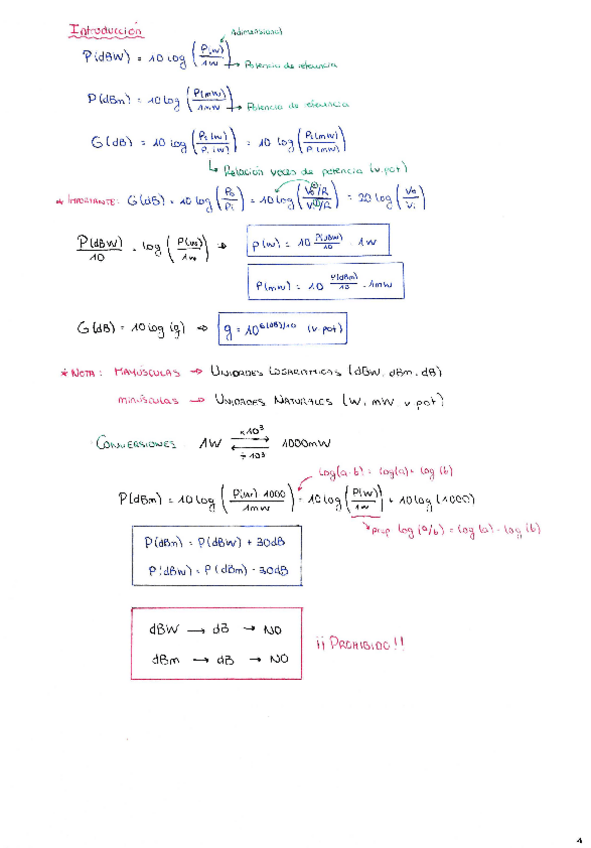 Introducción
adimensional
P(dBW) = 10 log (P(W)/1W) → Potencia de referencia
P(dBm) = 10 log (P(mW)/1mW) → Potencia de referencia
G(dB) = 10 log (P(W)/P(W)) = 10 log (P(mW)/P(mW))
↳ Relación veces de potencia (v.pot)
* IMPORTANTE: G(dB) = 10 log (Po/Pi) = 10 log (Vo²/R / Vi²/R) = 20 log (Vo/Vi)
P(dBW)/10 = log (P(W)/1W) ⇒ p(W) = 10^(P(dBW)/10) · 1W
P(mW) = 10^(P(dBm)/10) · 1mW
G(dB) = 10 log (g) ⇒ g = 10^(G(dB)/10) (v.pot)
* NOTA: MAYÚSCULAS → UNIDADES LOGARITMICAS (dBW, dBm, dB)
minúsculas → UNIDADES NATURALES (W, mW, v.pot)
CONVERSIONES 1W ⇄ 1000mW
×10³
÷10³
log(a·b) = log(a) + log(b)
P(dBm) = 10 log (P(W)·1000/1mW) = 10 log (P(W)/1W) + 10 log (1000)
prop log (a/b) = log (a) - log (b)
P(dBm) = P(dBW) + 30dB
P(dBW) = P(dBm) - 30dB
dBW → dB → NO
dBm → dB → NO
¡¡ PROHIBIDO !!
1